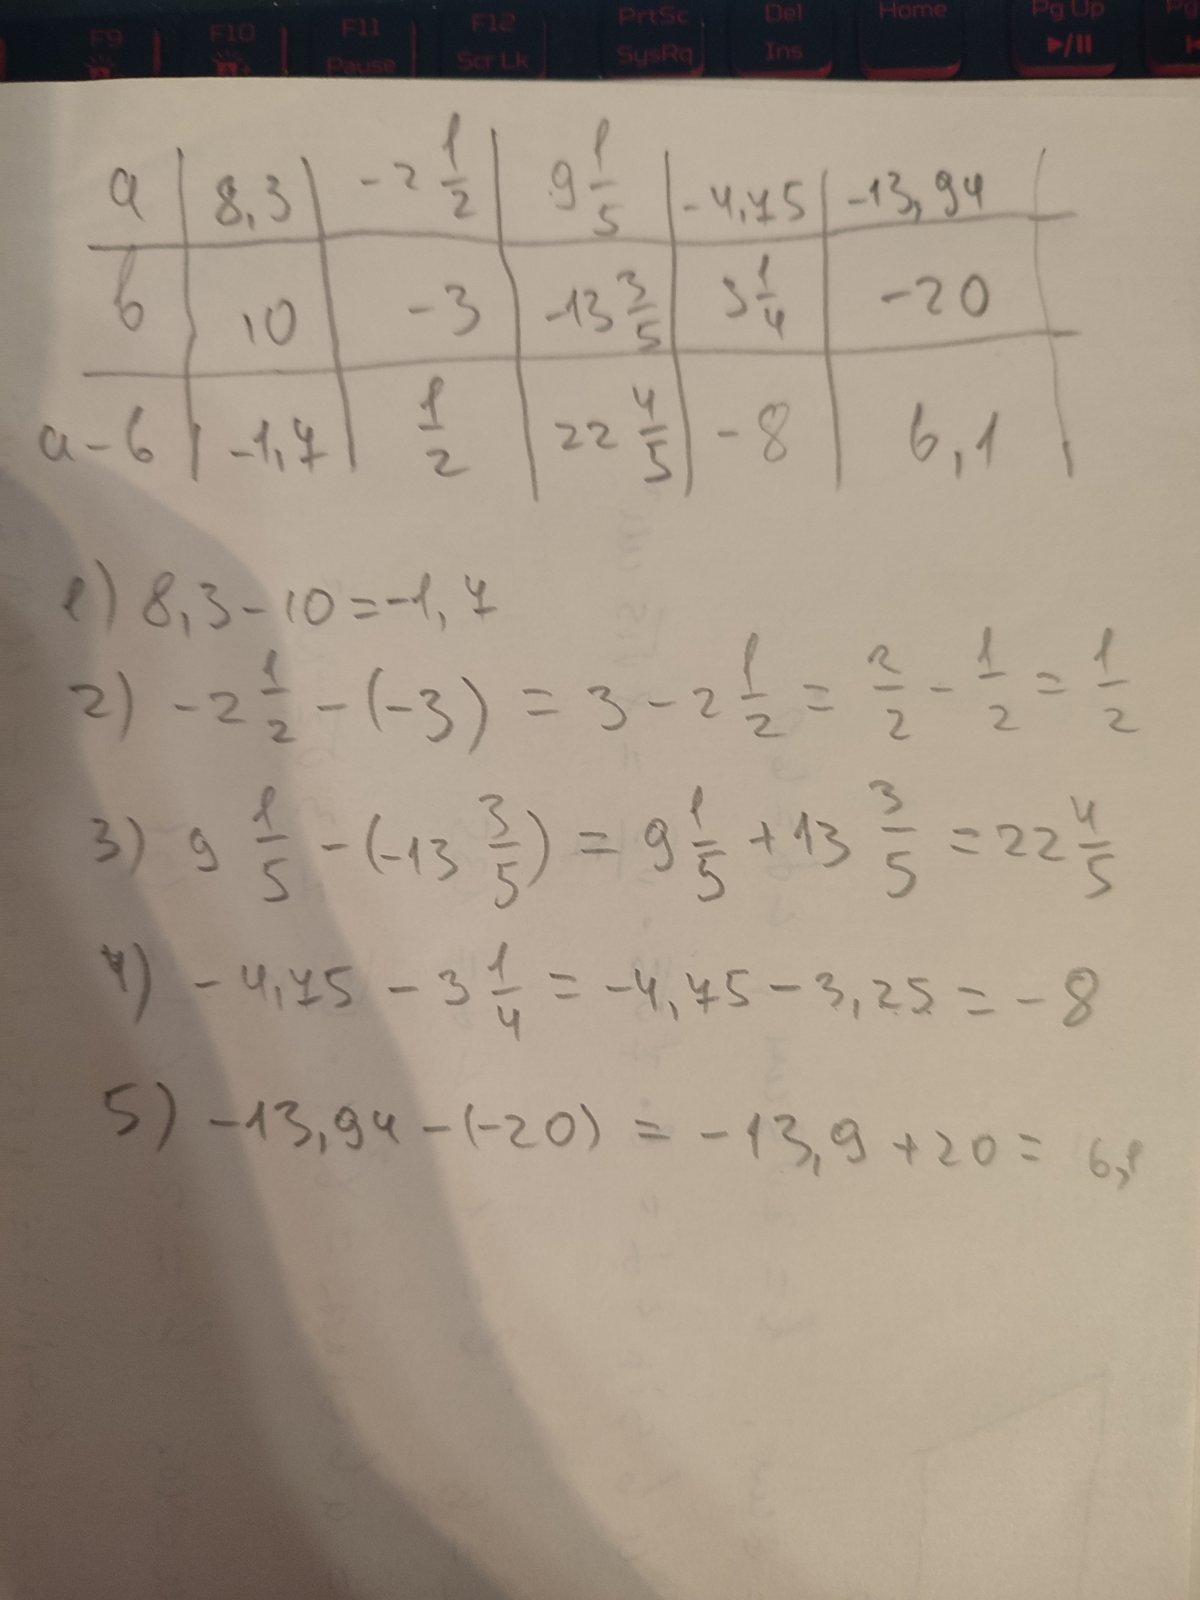 F9 F10 F11 F12 PrtSc Del Home Pg Up Pg
Pause Scr Lk SysRq Ins
a | 8,3 | -2 1/2 | 9 1/5 | -4,75 | -13,94
b | 10 | -3 | -13 3/5 | 3 1/4 | -20
a-b | -1,7 | 1/2 | 22 4/5 | -8 | 6,1
1) 8,3-10=-1,7
2) -2 1/2 -(-3) = 3-2 1/2 = 2/2 - 1/2 = 1/2
3) 9 1/5 -(-13 3/5) = 9 1/5 +13 3/5 = 22 4/5
4) -4,75 - 3 1/4 = -4,75-3,25 = -8
5) -13,94 -(-20) = -13,9 +20 = 6,1